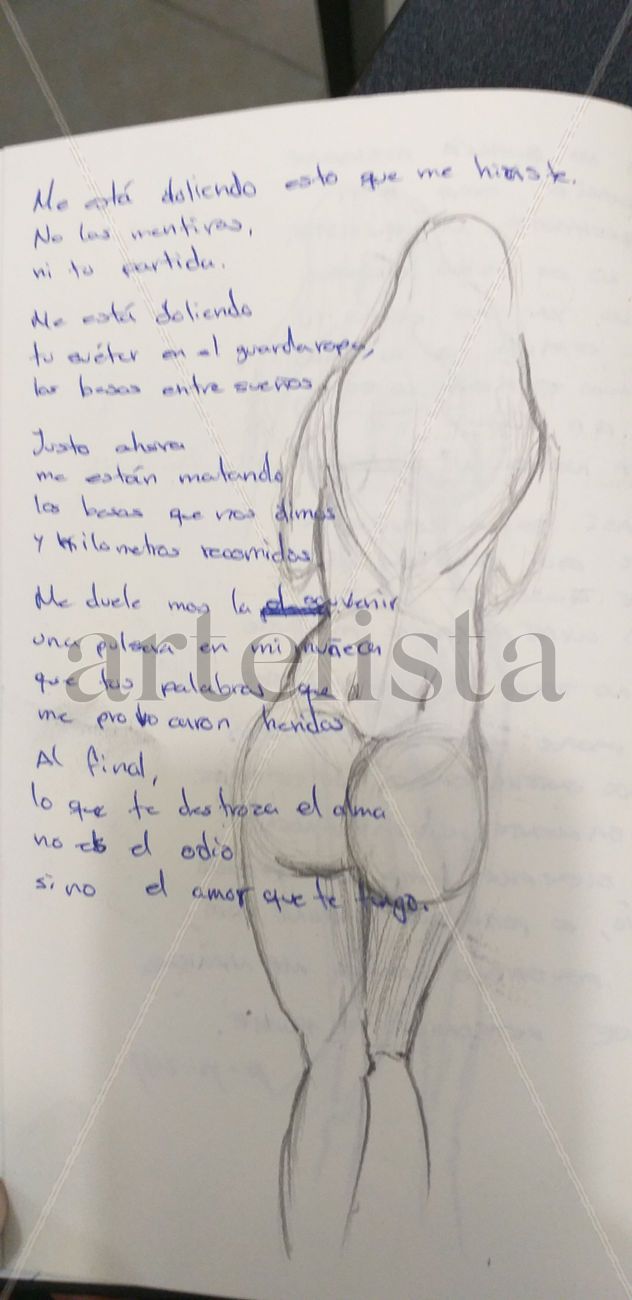 Me está doliendo esto que me hiciste.
No las mentiras,
ni tu partida.
Me está doliendo
tu suéter en el guardaropa,
los besos entre sueños
Justo ahora
me están matando
los besos que nos dimos
y kilometros recorridos
Me duele mas la souvenir
una pulsera en mi muñeca
que tus palabras que
me provocaron heridas
Al final,
lo que te destroza el alma
no es el odio
sino el amor que te tengo.
artelista